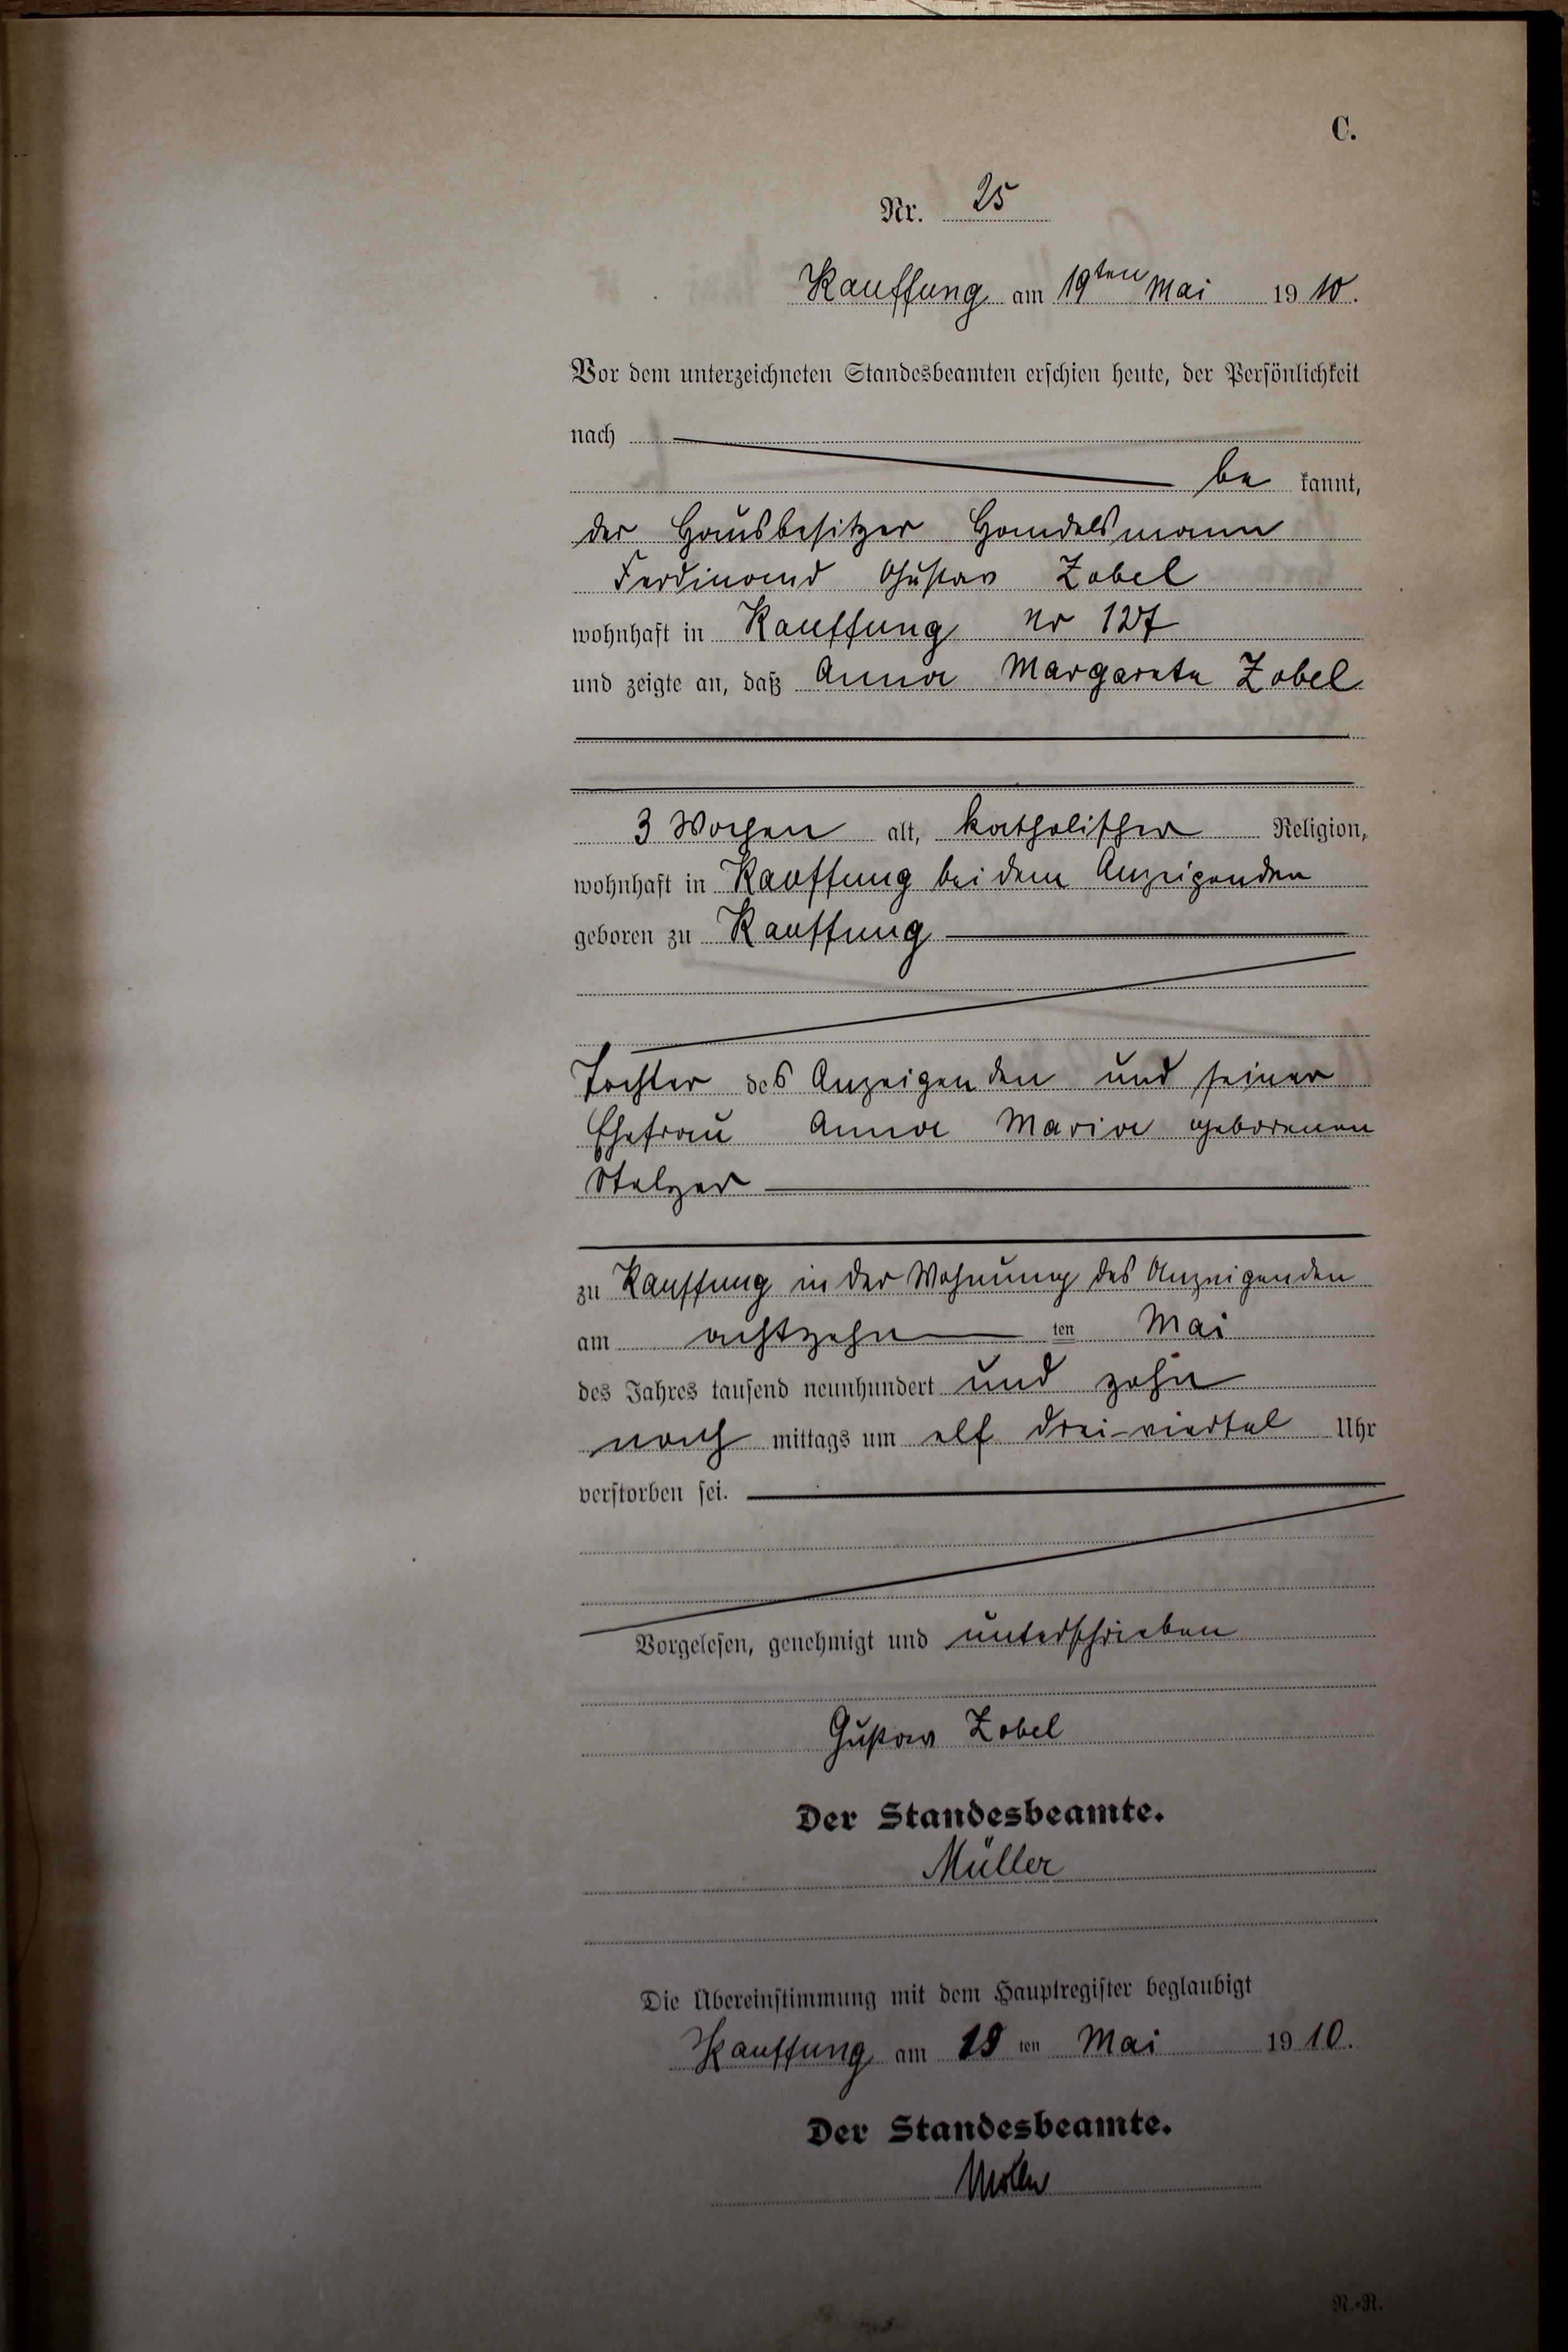 C.
Nr. 25
Kauffung am 19ten Mai 1910.
Vor dem unterzeichneten Standesbeamten erschien heute, der Persönlichkeit
nach
be kannt,
der Hausbesitzer Handelsmann
Ferdinand Gustav Zobel
wohnhaft in Kauffung Nr 127
und zeigte an, daß Anna Margareta Zobel
3 Wochen alt, katholischer Religion,
wohnhaft in Kauffung bei dem Anzeigenden
geboren zu Kauffung
Tochter des Anzeigenden und seiner
Ehefrau Anna Maria geborenen
Stelzer
zu Kauffung in der Wohnung des Anzeigenden
am achtzehn ten Mai
des Jahres tausend neunhundert und zehn
nach mittags um elf drei-viertel Uhr
verstorben sei.
Vorgelesen, genehmigt und unterschrieben
Gustav Zobel
Der Standesbeamte.
Müller
Die Übereinstimmung mit dem Hauptregister beglaubigt
Kauffung am 19 ten Mai 1910.
Der Standesbeamte.
Müller
N.-R.